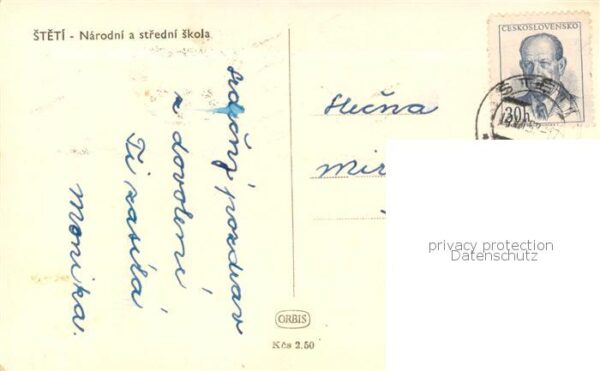 ŠTĚTÍ - Národní a střední škola
srdečný pozdrav
z dovolené
Ti zasílá
Monika.
Slečna
ORBIS
Kčs 2.50
ČESKOSLOVENSKO
30h
ŠTĚTÍ
privacy protection
Datenschutz